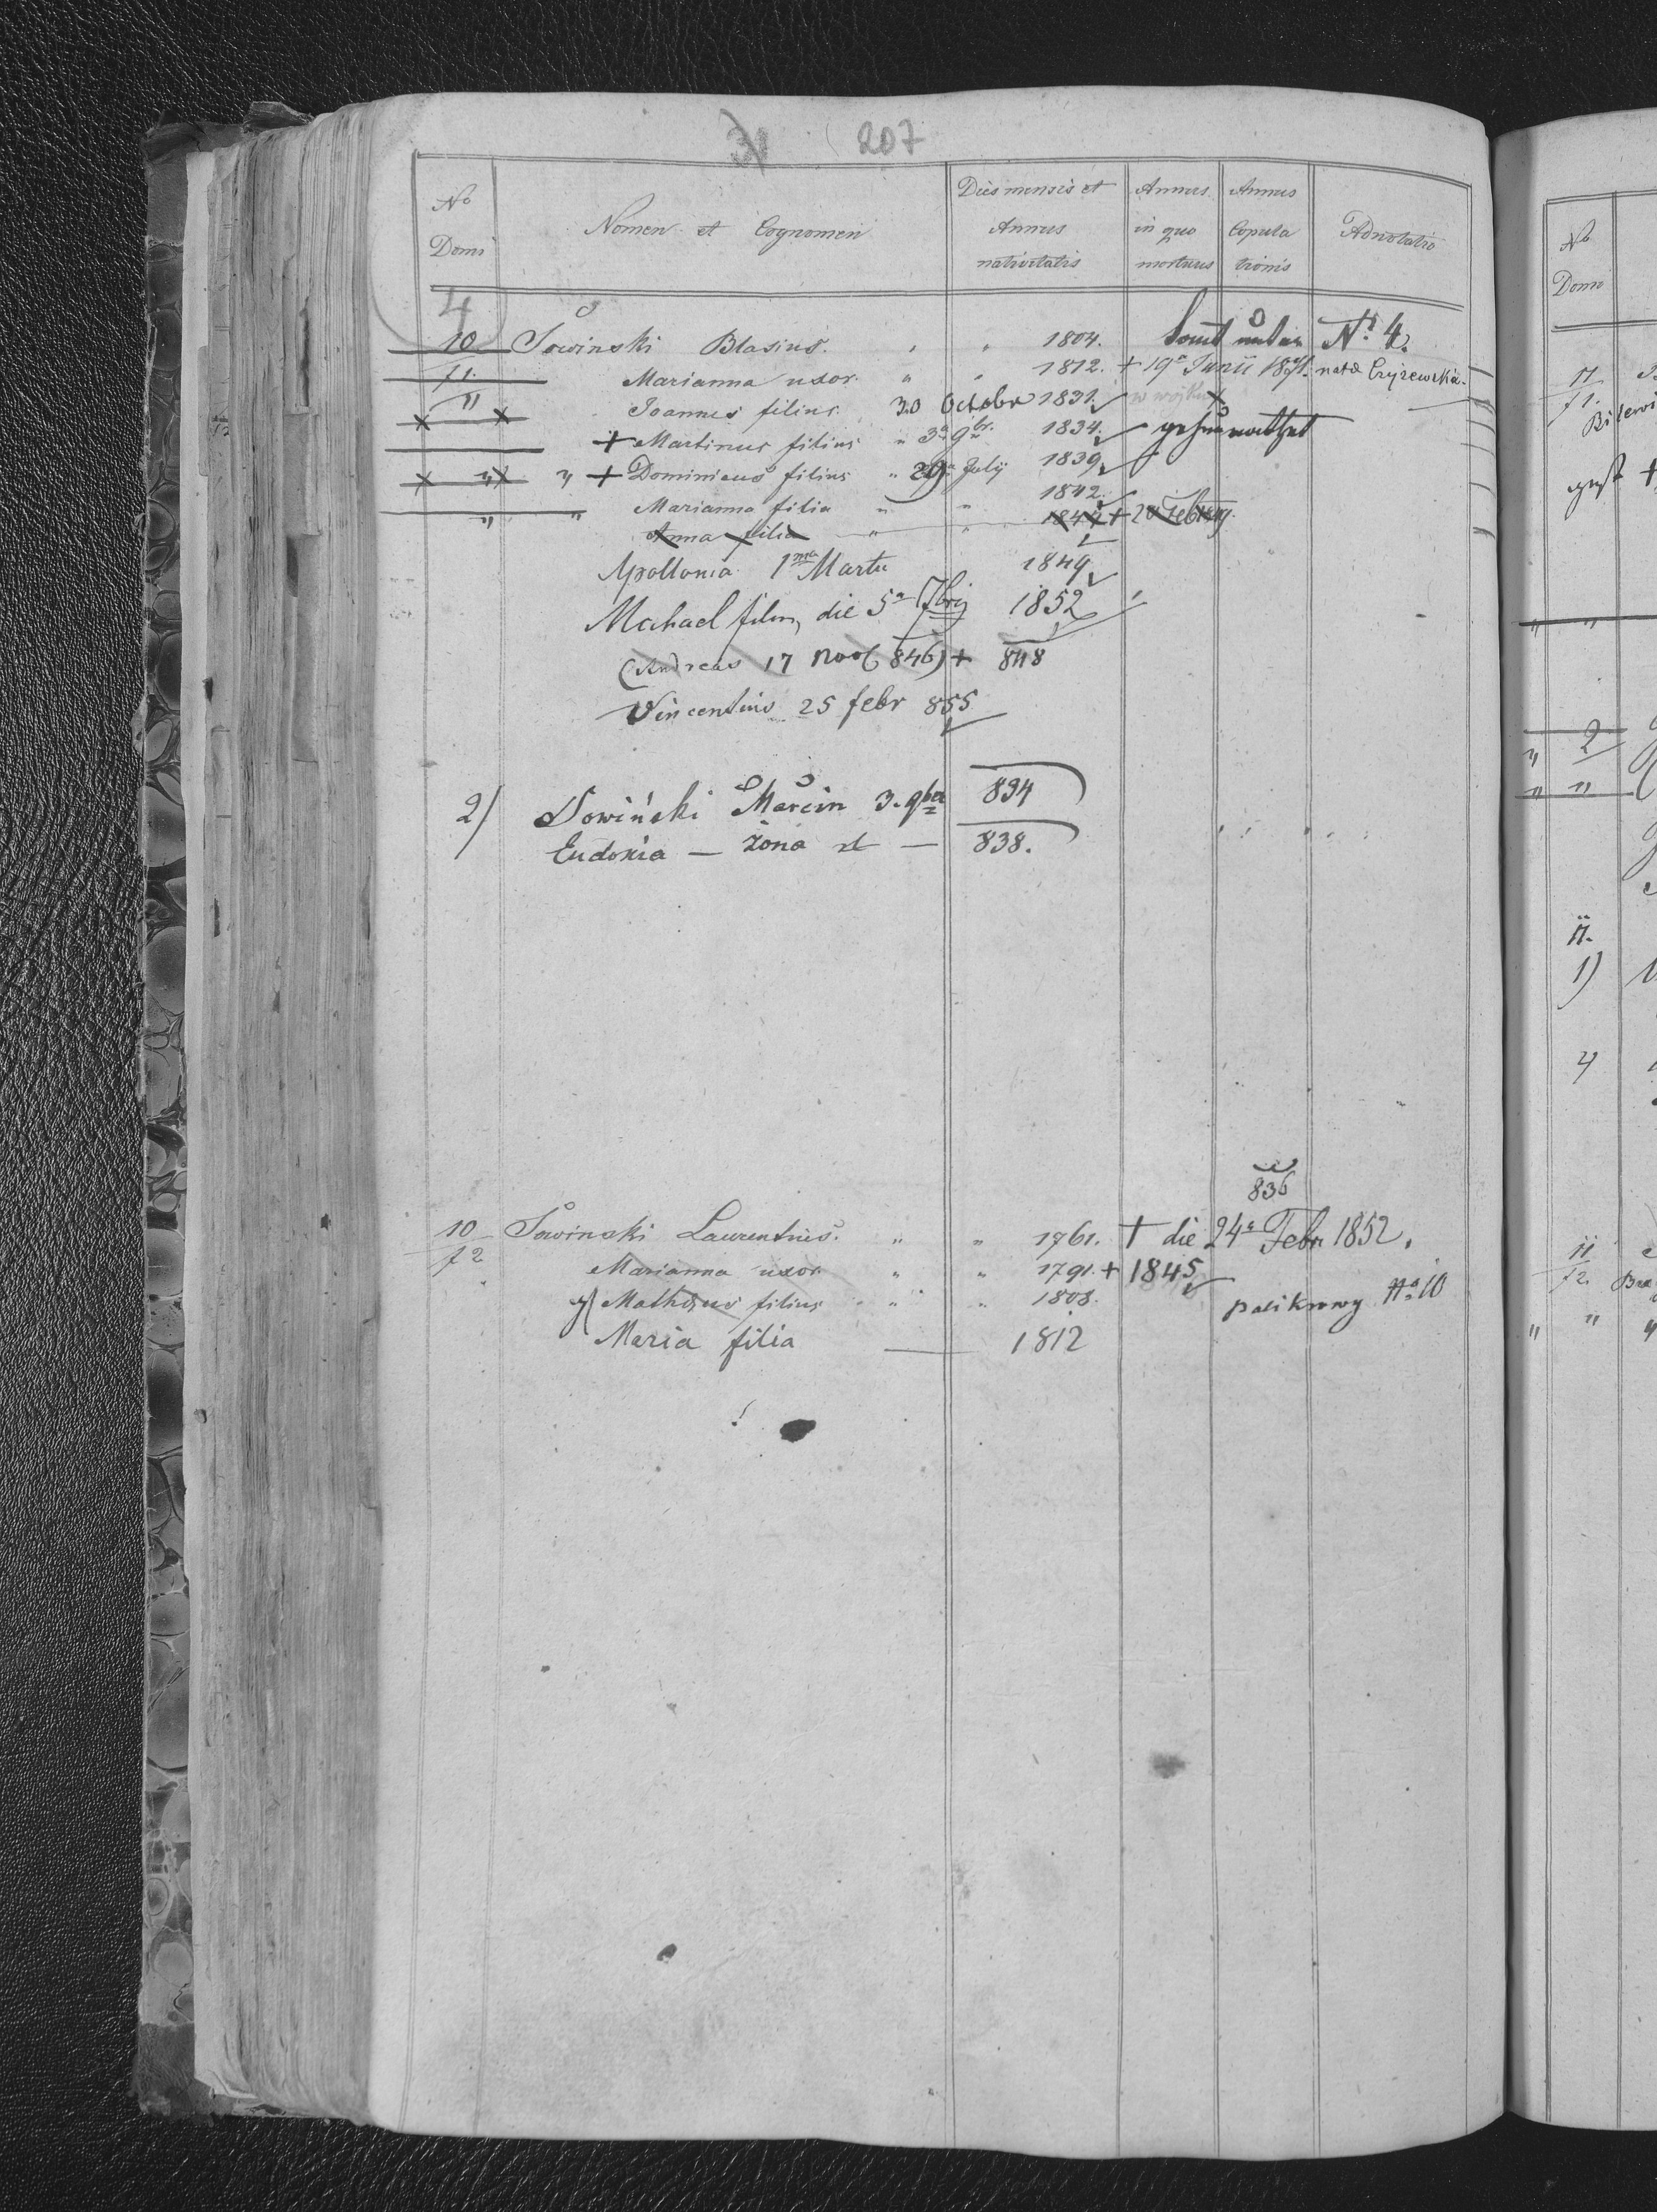 207
No Domi
Nomen et Cognomen
Dies mensis et Annus nativitatis
Annus in quo mortuus
Annus Copulationis
Adnotatio
4
10 Sowinski Blasius. " " 1804. No 4.
f1. Marianna uxor. " " 1812. + 19a Junii 1871. nata Czyżewska.
" Joannes filius 30 Octobr 1831. w wojsku
+ Martinus filius " 3a 9br. 1834.
" " + Dominicus filius " 29a July 1839.
Marianna filia " " 1842.
" " Anna filia " " 1844 + 20 Febr
Apollonia 1ma Martii 1849
Michael filius, die 5a 7bris 1852
(Andreas 17 Nov 846) + 848
Vincentius 25 febr 855
2) Sowiński Marcin 3. 9ber 834
Eudoxia — żona — 838.
836
10 Sowinski Laurentius. " " 1761. + die 24a Febr 1852.
f2 Marianna uxor " " 1791. + 1845
Matheus filius " " 1808. No 10
Maria filia — 1812
No Domi
11
f1.
" "
" 2
" "
11.
1)
11
f2.
" "